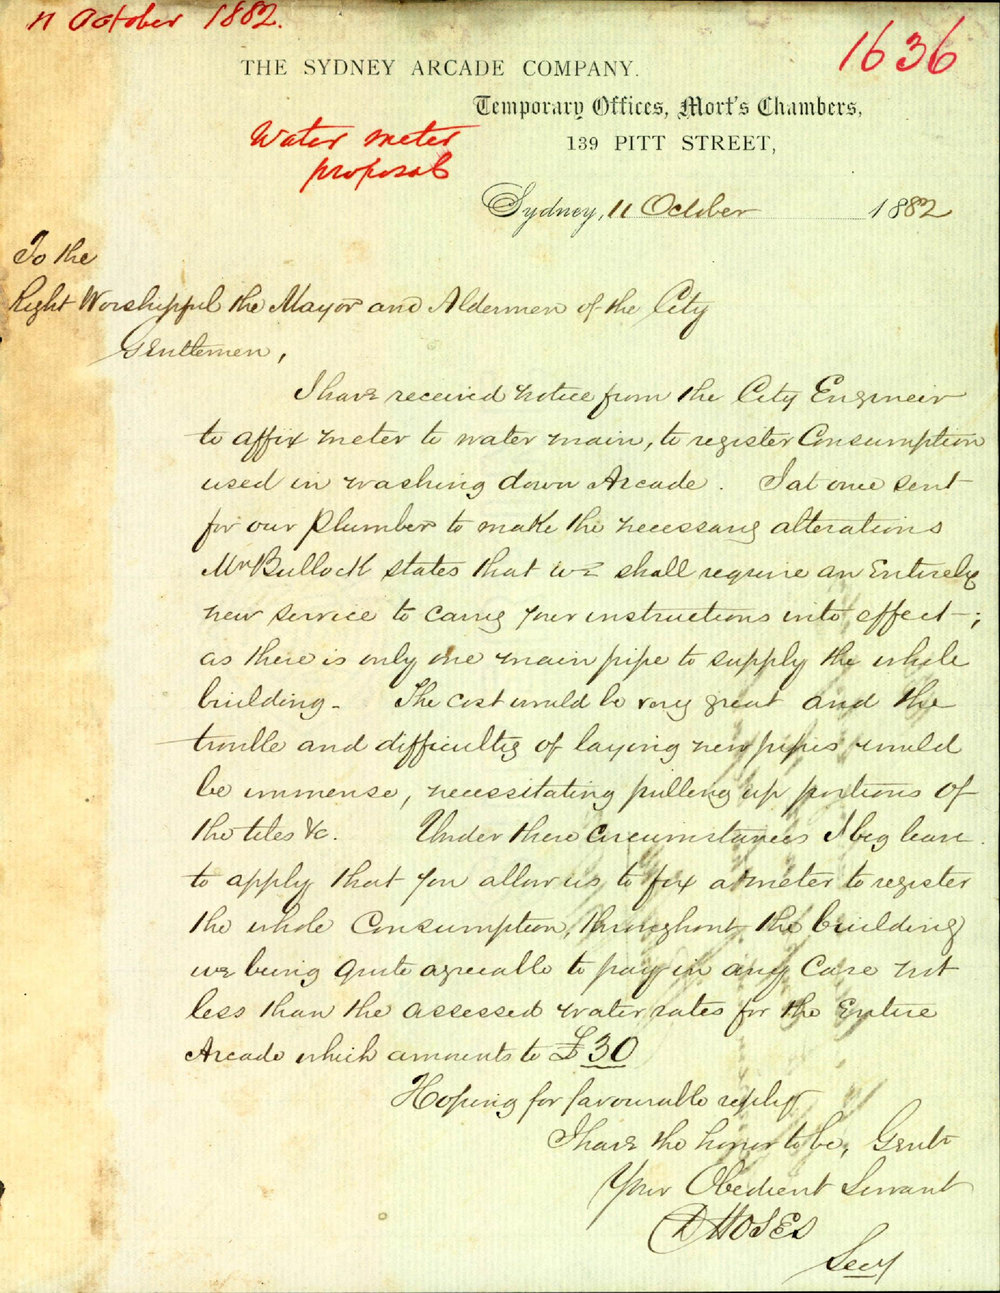 11 October 1882.
1636
THE SYDNEY ARCADE COMPANY.
Temporary Offices, Mort's Chambers,
139 PITT STREET,
Water meter
proposal
Sydney, 11 October 1882
To the
Right Worshipful the Mayor and Aldermen of the City
Gentlemen,
I have received notice from the City Engineer
to affix meter to water main, to register Consumption
used in washing down Arcade. I at once sent
for our Plumber to make the necessary alterations
Mr Bullock states that we shall require an Entirely
new service to carry your instructions into effect;
as there is only one main pipe to supply the whole
building - The cost would be very great and the
trouble and difficulty of laying new pipes would
be immense, necessitating pulling up portions of
the tiles &c. Under these circumstances I beg leave
to apply that you allow us to fix a meter to register
the whole Consumption, throughout the building
we being quite agreeable to pay in any Case not
less than the assessed water rates for the Entire
Arcade which amounts to £30
Hoping for favourable reply
I have the honor to be, Gentn
Your Obedient Servant
D MOSES
Secy